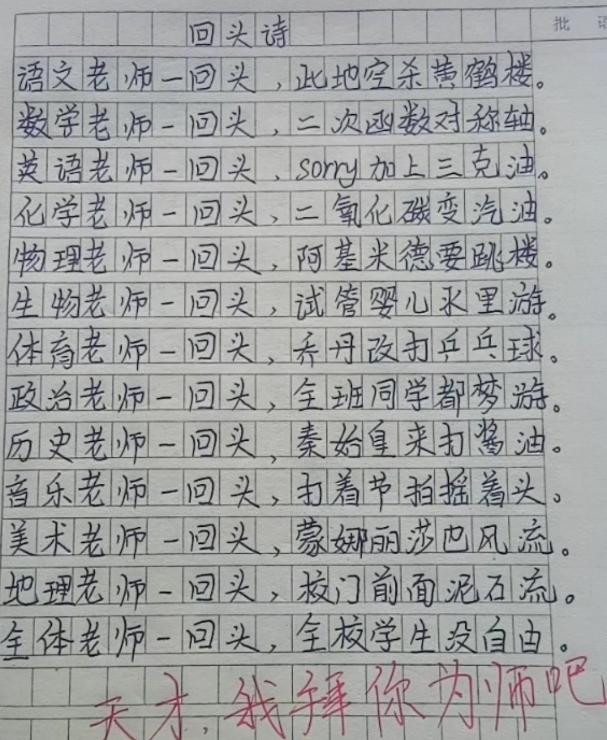 批
回头诗
语文老师一回头,此地空杀黄鹤楼。
数学老师一回头,二次函数对称轴。
英语老师一回头,sorry加上三克油。
化学老师一回头,二氧化碳变汽油。
物理老师一回头,阿基米德要跳楼。
生物老师一回头,试管婴儿水里游。
体育老师一回头,乔丹改打乒乓球。
政治老师一回头,全班同学都梦游。
历史老师一回头,秦始皇来打酱油。
音乐老师一回头,打着节拍摇着头、
美术老师一回头,蒙娜丽莎也风流。
地理老师一回头,校门前面泥石流。
全体老师一回头,全校学生没自由。
天才,我拜你为师吧